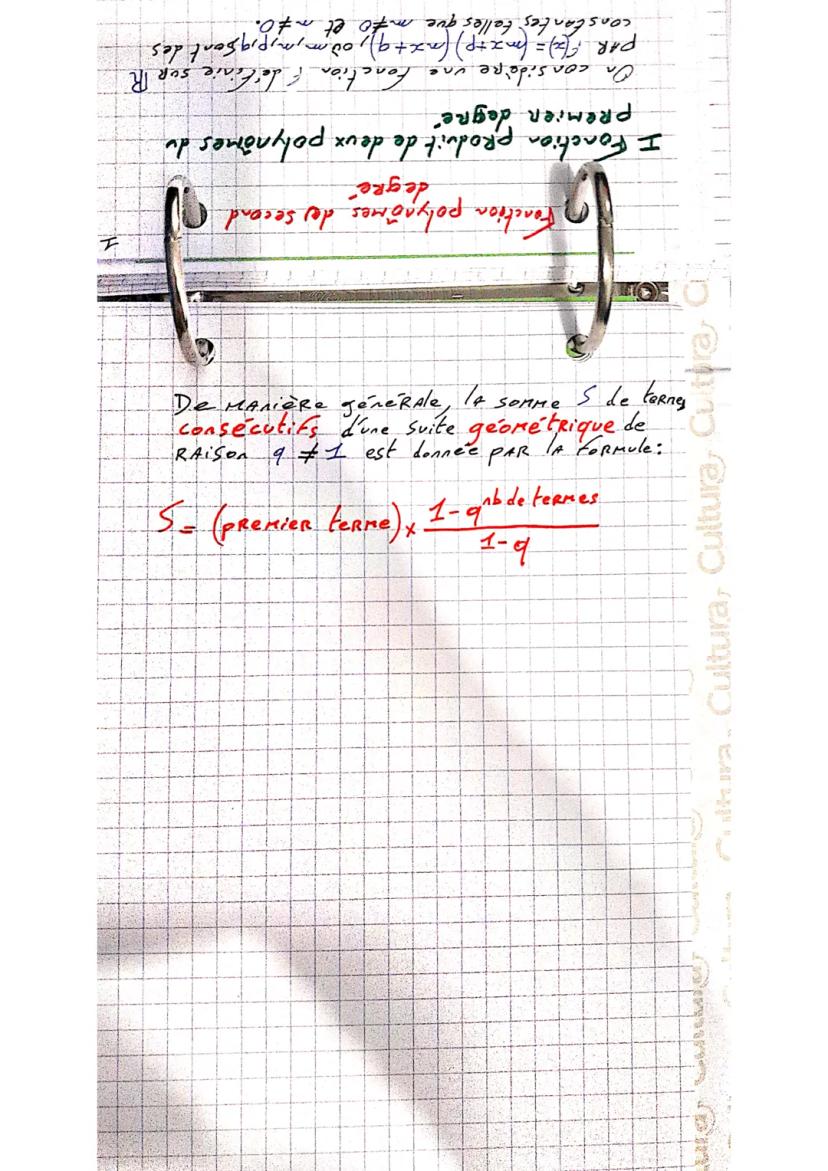 1
Fonction polynômes du second
degré
I Fonction produit de deux polynômes du
premier degré
On considère une fonction f définie sur ℝ
par f(x)=(mx+p)(nx+q), où m,n,p,q sont des
constantes telles que m≠0 et n≠0.
De manière générale, la somme S de termes
consécutifs d'une suite géométrique de
raison q ≠ 1 est donnée par la formule:
S = (premier terme) × (1-q^nb de termes)/(1-q)
Cultura, Cultura, Cultura, Cultura, Cultura